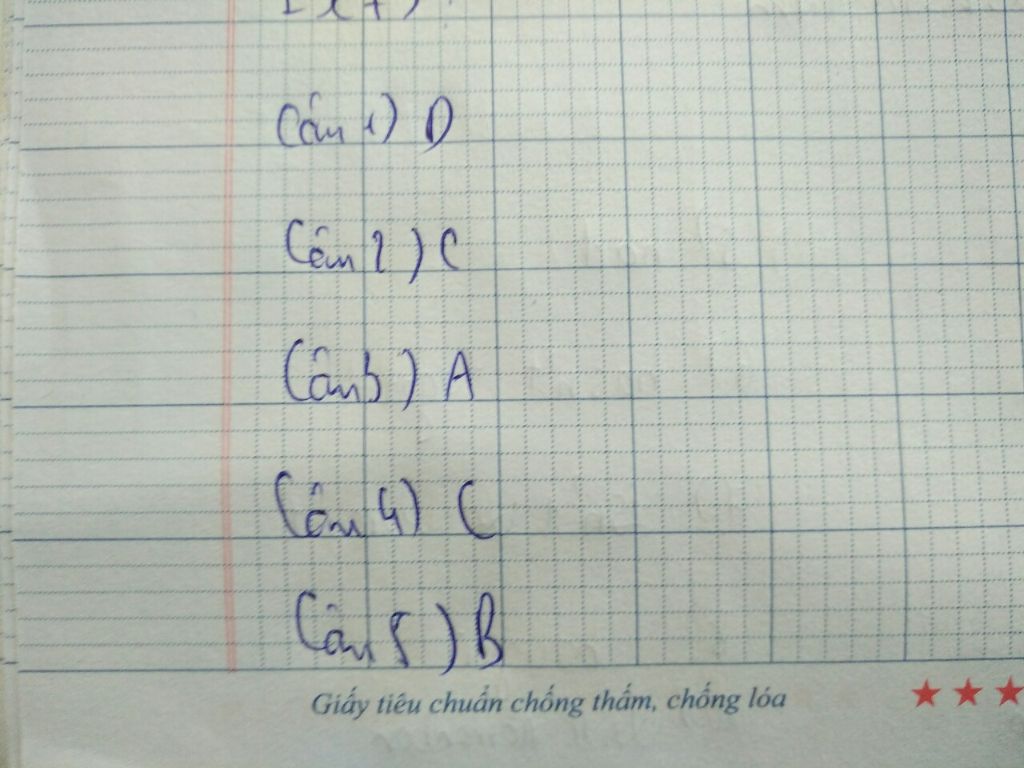 Câu 1) D
Câu 2) C
Câu 3) A
Câu 4) C
Câu 5) B
Giấy tiêu chuẩn chống thấm, chống lóa